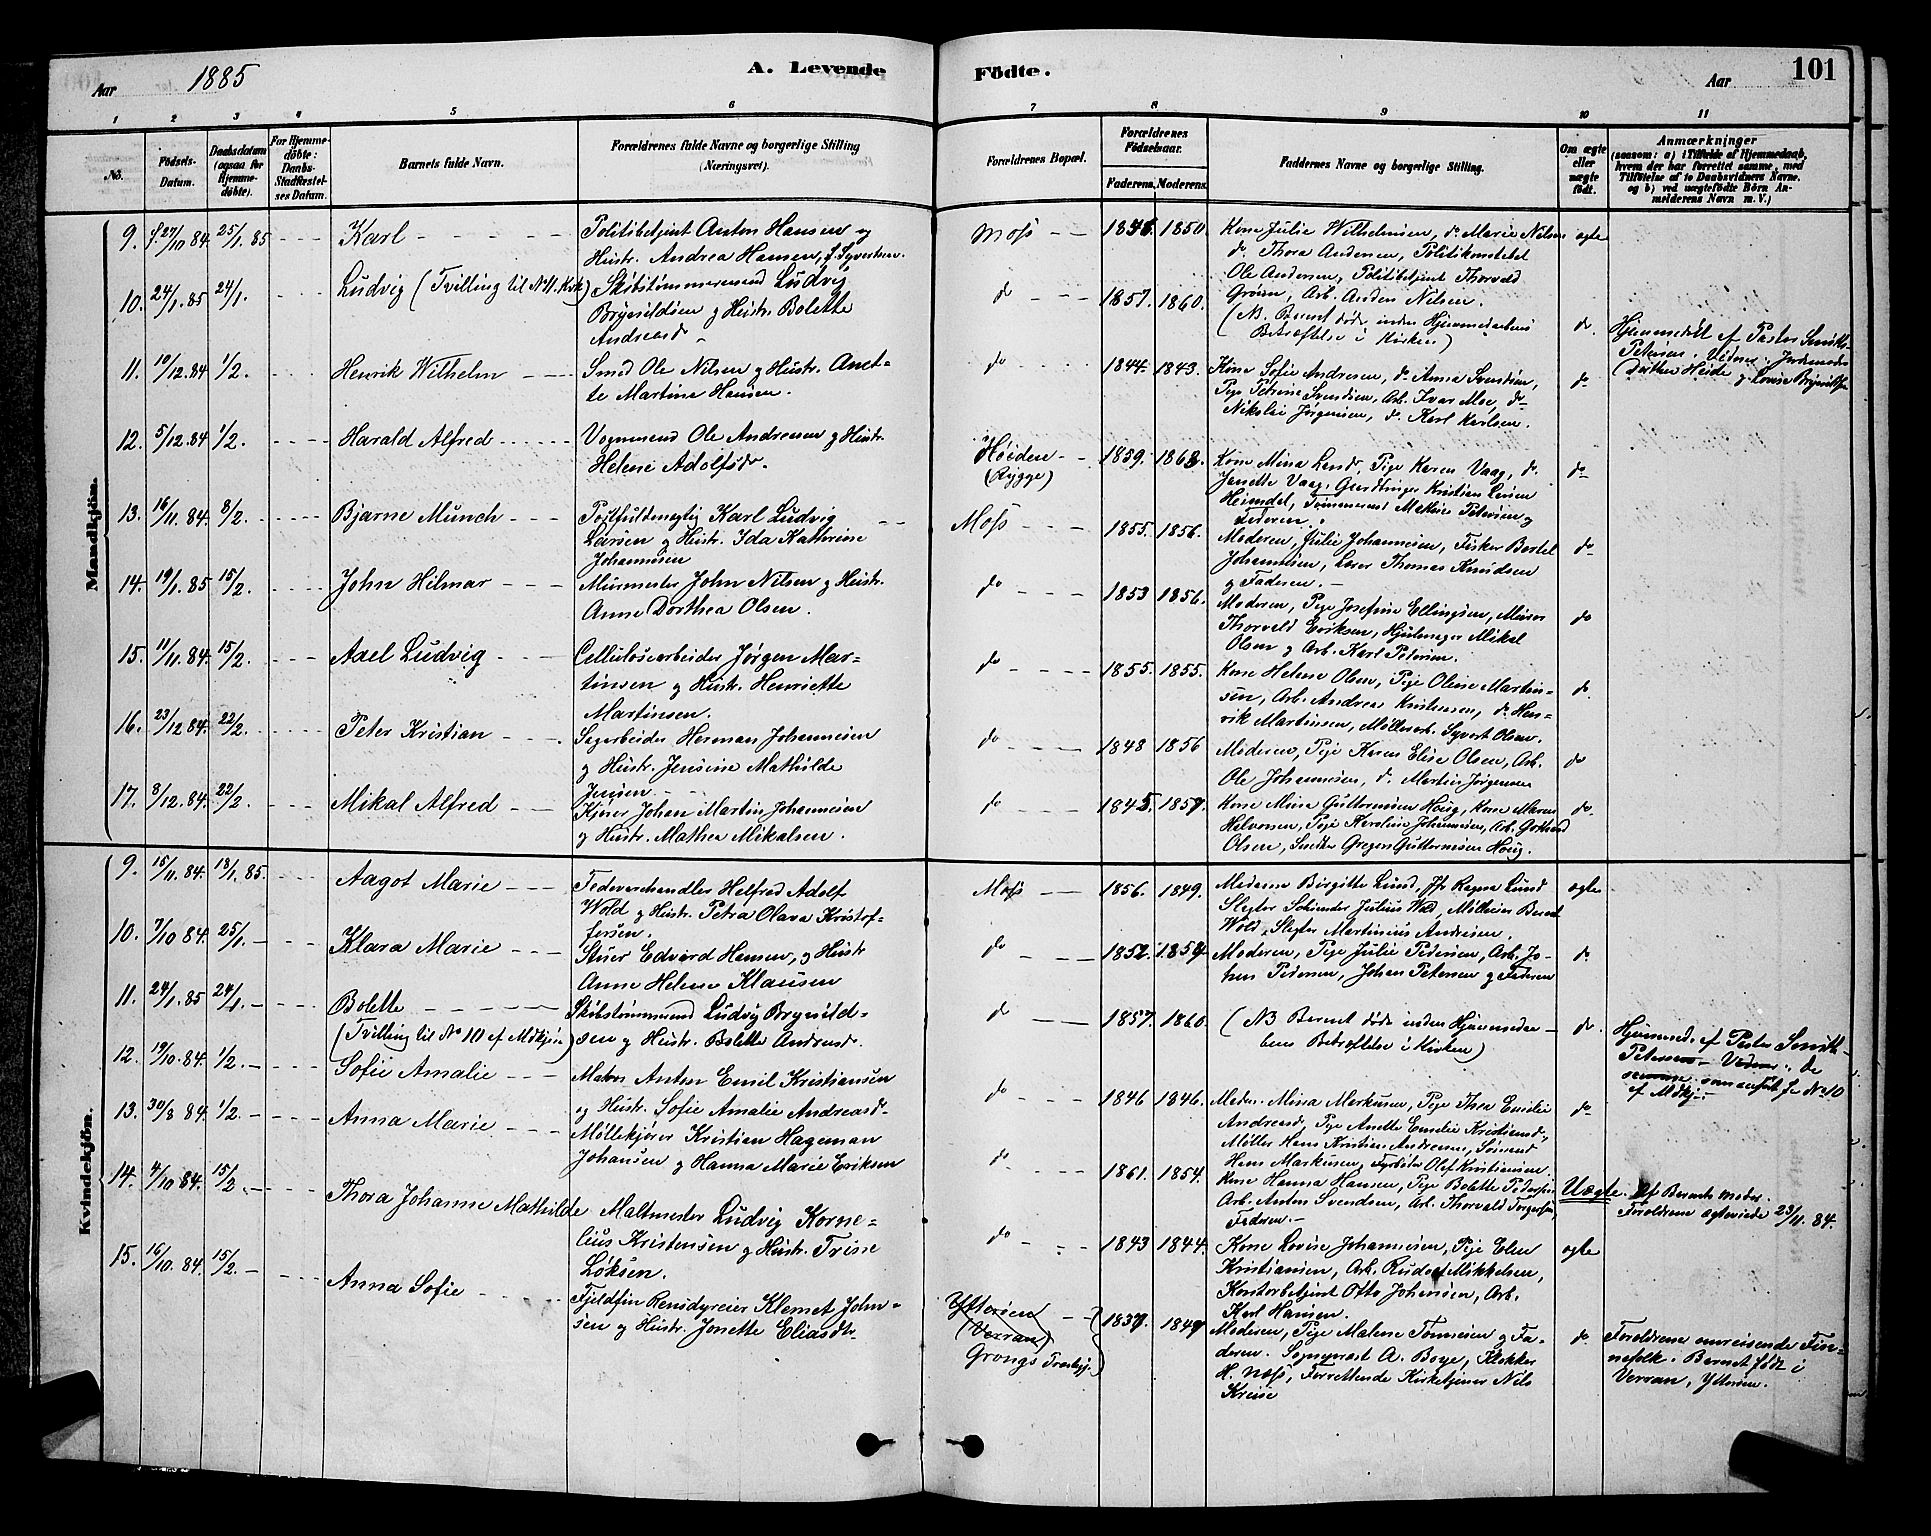 Aar 1885 A. Levende Födte. Aar 101
1 2 3 4 5 6 7 8 9 10 11
No.
Födsels-Datum.
Daabsdatum (ogsaa for Hjemmedöbte).
For Hjemmedöbte: Daabs-Stadfæstelses Datum.
Barnets fulde Navn.
Forældrenes fulde Navne og borgerlige Stilling (Næringsvei).
Forældrenes Bopæl.
Forældrenes Födselsaar.
Faderens. Moderens.
Faddernes Navne og borgerlige Stilling.
Om ægte eller uægte født.
Anmærkninger
(saasom: a) i Tilfælde af Hjemmedaab, hvem der har forrettet samme, med Tilföielse af to Daabsvidners Navne, og b) ved uægtefödte Börn Anmelderens Navn m. V.)
Mandkjön.
9. f. 27/10 84. 25/1. 85 Karl
Politibetjent Anton Hansen og
Hustr. Andrea Hansen, f. Syvertsen.
Moss 1850.
Kone Julie Wilhelmsen, do. Marie Nilsen
do. Thora Andersen, Politikonstabel
Ole Andersen, Politibetjent Thorvald
Grøien, Arb. Anders Nilsen.
ægte
10. 24/1. 85 24/1. Ludvig (Tvilling til No 11. Kvk)
Skibstømmermand Ludvig
Brynildsen og Hustr. Bolette
Andreasd.
do 1857. 1860.
(NB. Barnet døde inden Hjemmedaabens
Bekræftelse i Kirken)
do.
Hjemmedøbt af Pastor Smith-
Petersen. Vidner: Jordmoder
Dorthea Heide og Lovise Brynildsen
11. 19/12. 84 1/2. Henrik Wilhelm
Smed Ole Nilsen og Hustr. Anet-
te Martine Hansen.
do 1844. 1843.
Kone Sofie Andresen, do Anna Svendsen,
Pige Petrine Svendsen, Arb. Ivar Moe, do
Nikolai Jørgensen, do. Karl Karlsen.
do
12. 5/12. 84. 1/2. Harald Alfred
Vognmand Ole Andresen og Hustr.
Helene Adolfsdr.
Høiden (Rygge) 1859.
Kone Mina Lund, Pige Karen Vaag, do.
Janette Vaag, Gaardbruger Kristian Larsen
Heimdal, Tømmermand Mathias Petersen og
Faderen.
do
13. 16/11. 84. 8/2. Bjarne Münch
Postfuldmægtig Karl Ludvig
Larsen og Hustr. Ida Kathrine
Johannesen
Moss 1855. 1856.
Moderen, Julie Johannesen, Fisker Bertel
Johannesen, Lærer Thomas Knudsen
og Faderen.
do
14. 19/1. 85 15/2. John Hilmar
Murmester John Nilsen og Hustr.
Anne Dorthea Olsen.
do 1853 1856.
Moderen, Pige Josefine Ellingsen, Murer
Thorvald Eriksen, Hjulmager Mikal
Olsen og Arb. Karl Petersen.
do
15. 11/11. 84. 15/2. Axel Ludvig
Cellulosearbeider Jørgen Mar-
tinsen og Hustr. Henriette
Martinsen.
do 1855. 1855.
Kone Helene Olsen, Pige Oline Martin-
sen, Arb. Andreas Kristensen, do. Hen-
rik Martinsen, Møllerarb. Syvert Olsen.
do.
16. 23/12. 84. 22/2. Peter Kristian
Sagarbeider Herman Johannesen
og Hustr. Jensine Mathilde
Jensen
do 1848 1856
Moderen, Pige Karen Elise Olsen, Arb.
Ole Johannesen, do. Martin Jørgensen
do
17. 8/12. 84. 22/2. Mikal Alfred
Kjører Johan Martin Johannesen
og Hustr. Mathea Mikalsen.
do 1845. 1857.
Kone Mina Guttormsen Houg, Kone Maren
Halvorsen, Pige Karoline Johannesen, Arb.
Olsen, Snedker Gregers Guttormsen Houg.
do.
Kvindekjön.
9. 15/11. 84. 18/1. 85. Aagot Marie
Fedevarehandler Helfred Adolf
Wold og Hustr. Petra Olava Kristof-
fersen.
Moss 1856. 1849.
Madame Birgitte Lund, Jfr Ragna Lund
Slagter Julius Wold, Berndt
Wold, Slagter Martinius Andresen.
ægte
10. 7/10 84. 25/1. Klara Marie
Stuer Edvard Hansen, og Hustr
Anne Helene Klausen
do 1852.
Moderen, Pige Julie Pedersen, Arb. Jo-
han Pedersen, Johan Petersen og Faderen
do.
11. 24/1. 85 24/1 Bolette
(Tvilling til No 10 af Mdkjøn)
Skibstømmermand Ludvig Brynild-
sen og Hustr. Bolette Andreasd.
do 1857. 1860.
(NB Barnet døde inden Hjemmedaa-
bens Bekræftelse i Kirken)
do.
Hjemmed. af Pastor Smith-
Petersen. Vidner: de
samme som anført f. No 10
af Mdkj.
12. 19/10. 84 1/2. Sofie Amalie
Maler Anton Emil Kristiansen
og Hustr. Sofie Amalie Andreasd.
do 1846 1846.
Madam Mina Markusen, Pige Thea Emilie
Andreasd, Pige Anette Emilie Kristiansd.,
Møller Hans Kristian Andresen, Sømand
Hans Markusen, Fyrbøter Olaf Kristiansen.
do
13. 30/8 84. 1/2. Anna Marie
Møllekjører Kristian Hageman
Johansen og Hanna Marie Eriksen
do 1861. 1854.
Kone Hanna Hansen, Pige Bolette Pedersen
Arb. Anton Svendsen, Arb. Thorvald Torgersen,
Faderen.
Uægte.
Af Barnets Moder.
Forældrene ægteviede 23/11. 84.
14. 4/10. 84. 15/2. Thora Johanne Mathilde
Maltmester Ludvig Korne-
lius Kristensen og Hustr. Trine
Løksen.
do 1843 1844.
Kone Lovise Johannesen, Pige Elen
Kristiansen, Arb. Rudolf Mikkelsen,
Kontorbetjent Otto Johansen, Arb.
Karl Hansen.
ægte
15. 16/10. 84. 15/2. Anna Sofie
Fjeldfin Rensdyreier Klemet John-
sen og Hustr. Jonette Eliasdtr.
Ytterøen
(Verran)
Grongs Præstgj.
Moderen, Pige Malene Tønnesen og Fa-
deren. Sogneprest A. Boye, Klokker
H. Næss, Forrettende Kirketjener Nils
Kreise
do
Forældrene omreisende Fin-
nefolk. Barnet født i
Verran, Ytterøen.